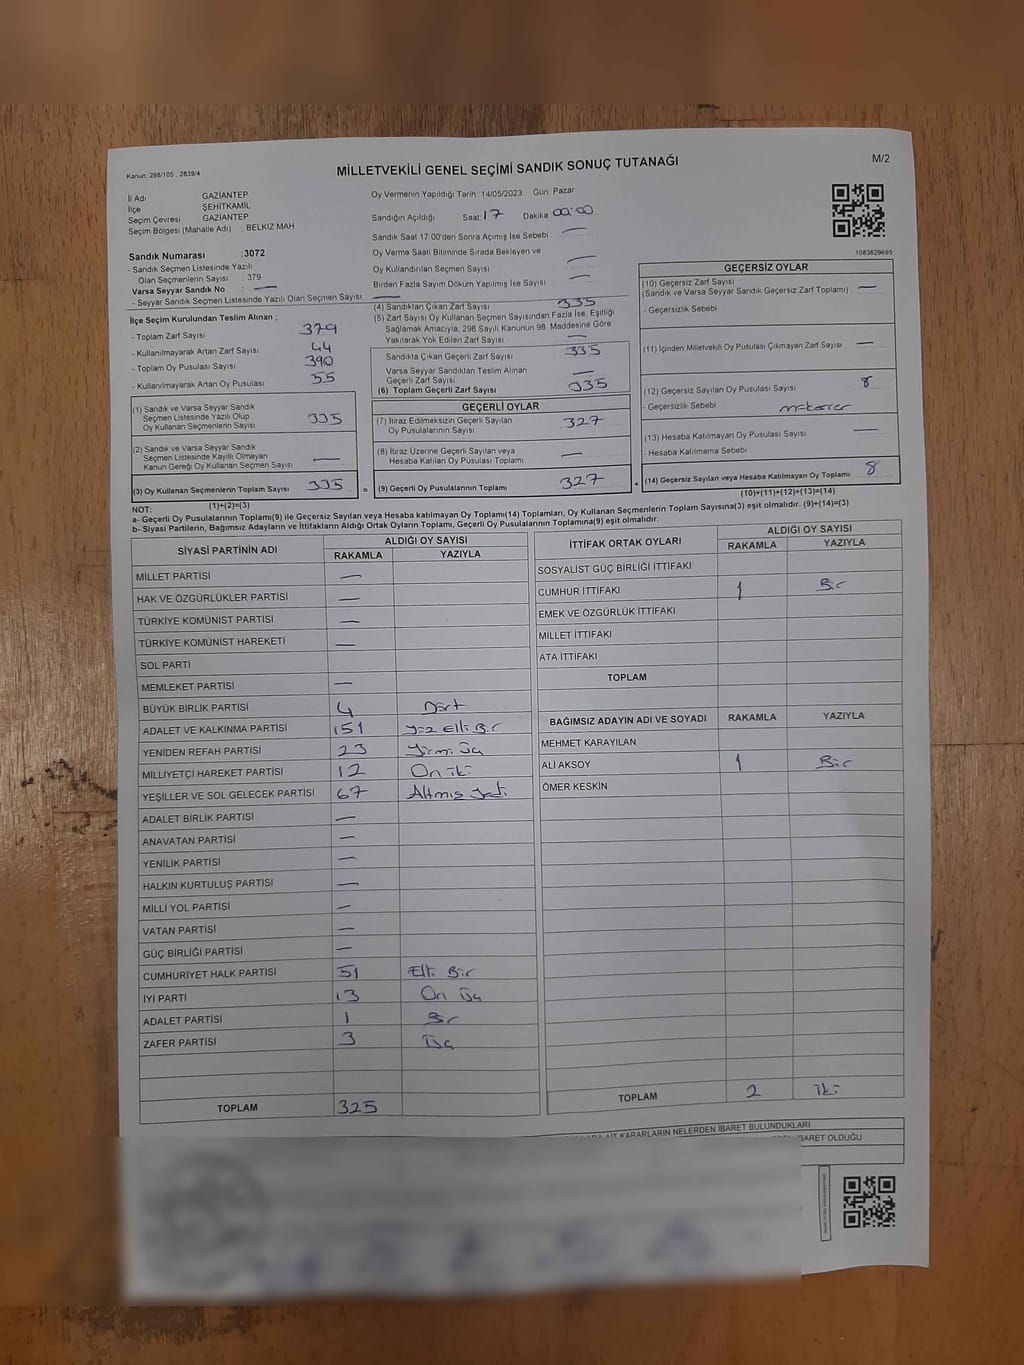 MİLLETVEKİLİ GENEL SEÇİMİ SANDIK SONUÇ TUTANAĞI
M/2
Kanun: 298/105 , 2839/4
İl Adı GAZİANTEP
İlçe ŞEHİTKAMİL
Seçim Çevresi GAZİANTEP
Seçim Bölgesi (Mahalle Adı) BELKIZ MAH
Sandık Numarası :3072
- Sandık Seçmen Listesinde Yazılı
Olan Seçmenlerin Sayısı : 379
Varsa Seyyar Sandık No : —
- Seyyar Sandık Seçmen Listesinde Yazılı Olan Seçmen Sayısı: —
Oy Vermenin Yapıldığı Tarih 14/05/2023 Gün Pazar
Sandığın Açıldığı Saat 17 Dakika 00:00
Sandık Saat 17:00'den Sonra Açımış İse Sebebi : —
Oy Verme Saati Bitiminde Sırada Bekleyen ve
Oy Kullandırılan Seçmen Sayısı —
Birden Fazla Sayım Döküm Yapılmış İse Sayısı —
1083629695
İlçe Seçim Kurulundan Teslim Alınan ;
- Toplam Zarf Sayısı 379
- Kullanılmayarak Artan Zarf Sayısı 44
- Toplam Oy Pusulası Sayısı 390
- Kullanılmayarak Artan Oy Pusulası 55
(1) Sandık ve Varsa Seyyar Sandık
Seçmen Listesinde Yazılı Olup
Oy Kullanan Seçmenlerin Sayısı 335
(2) Sandık ve Varsa Seyyar Sandık
Seçmen Listesinde Kayıtlı Olmayan
Kanun Gereği Oy Kullanan Seçmen Sayısı —
(3) Oy Kullanan Seçmenlerin Toplam Sayısı 335
(1)+(2)=(3)
(4) Sandıktan Çıkan Zarf Sayısı 335
(5) Zarf Sayısı Oy Kullanan Seçmen Sayısından Fazla İse, Eşitliği
Sağlamak Amacıyla, 298 Sayılı Kanunun 98. Maddesine Göre
Yakılarak Yok Edilen Zarf Sayısı —
Sandıkta Çıkan Geçerli Zarf Sayısı 335
Varsa Seyyar Sandıktan Teslim Alınan
Geçerli Zarf Sayısı —
(6) Toplam Geçerli Zarf Sayısı 335
GEÇERLİ OYLAR
(7) İtiraz Edilmeksizin Geçerli Sayılan
Oy Pusulalarının Sayısı 327
(8) İtiraz Üzerine Geçerli Sayılan veya
Hesaba Katılan Oy Pusulası Toplamı —
= (9) Geçerli Oy Pusulalarının Toplamı 327
GEÇERSİZ OYLAR
(10) Geçersiz Zarf Sayısı
(Sandık ve Varsa Seyyar Sandık Geçersiz Zarf Toplamı) —
- Geçersizlik Sebebi
(11) İçinden Milletvekili Oy Pusulası Çıkmayan Zarf Sayısı —
(12) Geçersiz Sayılan Oy Pusulası Sayısı 8
- Geçersizlik Sebebi :
(13) Hesaba Katılmayan Oy Pusulası Sayısı —
- Hesaba Katılmama Sebebi
+ (14) Geçersiz Sayılan veya Hesaba Katılmayan Oy Toplamı 8
(10)+(11)+(12)+(13)=(14)
NOT:
a- Geçerli Oy Pusulalarının Toplamı(9) ile Geçersiz Sayılan veya Hesaba katılmayan Oy Toplamı(14) Toplamları, Oy Kullanan Seçmenlerin Toplam Sayısına(3) eşit olmalıdır. (9)+(14)=(3)
b- Siyasi Partilerin, Bağımsız Adayların ve İttifakların Aldığı Ortak Oyların Toplamı, Geçerli Oy Pusulalarının Toplamına(9) eşit olmalıdır.
SİYASİ PARTİNİN ADI ALDIĞI OY SAYISI
RAKAMLA YAZIYLA
MİLLET PARTİSİ —
HAK VE ÖZGÜRLÜKLER PARTİSİ —
TÜRKİYE KOMÜNİST PARTİSİ —
TÜRKİYE KOMÜNİST HAREKETİ —
SOL PARTİ
MEMLEKET PARTİSİ —
BÜYÜK BİRLİK PARTİSİ 4 Dört
ADALET VE KALKINMA PARTİSİ 151 Yüz Elli Bir
YENİDEN REFAH PARTİSİ 23 Yirmi Üç
MİLLİYETÇİ HAREKET PARTİSİ 12 On iki
YEŞİLLER VE SOL GELECEK PARTİSİ 67 Altmış yedi
ADALET BİRLİK PARTİSİ —
ANAVATAN PARTİSİ —
YENİLİK PARTİSİ —
HALKIN KURTULUŞ PARTİSİ —
MİLLİ YOL PARTİSİ —
VATAN PARTİSİ —
GÜÇ BİRLİĞİ PARTİSİ —
CUMHURİYET HALK PARTİSİ 51 Elli Bir
İYİ PARTİ 13 On Üç
ADALET PARTİSİ 1 Bir
ZAFER PARTİSİ 3 Üç
TOPLAM 325
İTTİFAK ORTAK OYLARI ALDIĞI OY SAYISI
RAKAMLA YAZIYLA
SOSYALİST GÜÇ BİRLİĞİ İTTİFAKI
CUMHUR İTTİFAKI 1 Bir
EMEK VE ÖZGÜRLÜK İTTİFAKI
MİLLET İTTİFAKI
ATA İTTİFAKI
TOPLAM
BAĞIMSIZ ADAYIN ADI VE SOYADI RAKAMLA YAZIYLA
MEHMET KARAYILAN
ALİ AKSOY 1 Bir
ÖMER KESKİN
TOPLAM 2 İki
AİT KARARLARIN NELERDEN İBARET BULUNDUKLARI
İBARET OLDUĞU